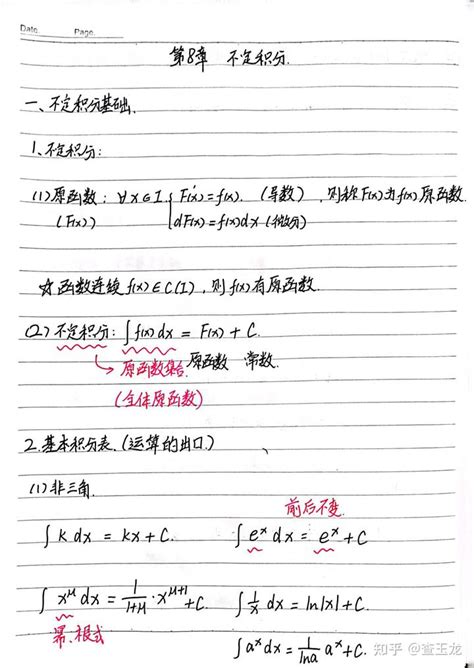 Date. Page.
第8章 不定积分.
一、不定积分基础.
1、不定积分:
(1)原函数: ∀x∈I { F'(x)=f(x). (导数), 则称F(x)为f(x)原函数.
(F(x)) dF(x)=f(x)dx (微分)
☆函数连续 f(x)∈C(I), 则f(x)有原函数.
(2)不定积分: ∫f(x)dx = F(x) + C.
原函数集合 原函数 常数.
(全体原函数)
2.基本积分表.(运算的出口.)
(1)非三角.
前后不变.
∫k dx = kx+C. ∫e^x dx = e^x+C
∫x^μ dx = 1/(1+μ)·x^(μ+1)+C. ∫1/x dx = ln|x|+C.
幂、根式
∫a^x dx = 1/lna a^x+C.
知乎 @查玉龙